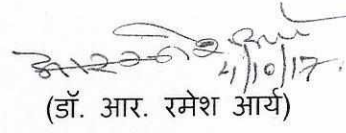 4/10/17.
(डॉ. आर. रमेश आर्य)